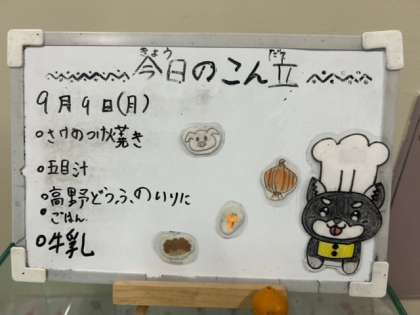 今日のこん立
きょう だて
9月9日(月)
・さけのつけ焼き
・五目汁
・高野どうふのいりに
・ごはん
・牛乳